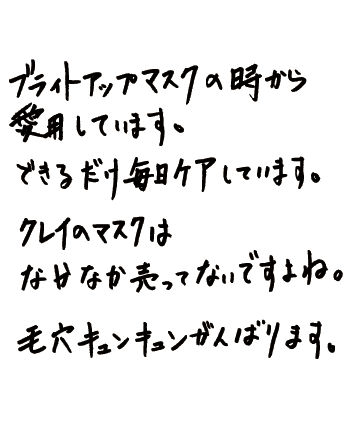 ブライトアップマスクの時から
愛用しています。
できるだけ毎日ケアしています。
クレイのマスクは
なかなか売ってないですよね。
毛穴キュンキュンがんばります。